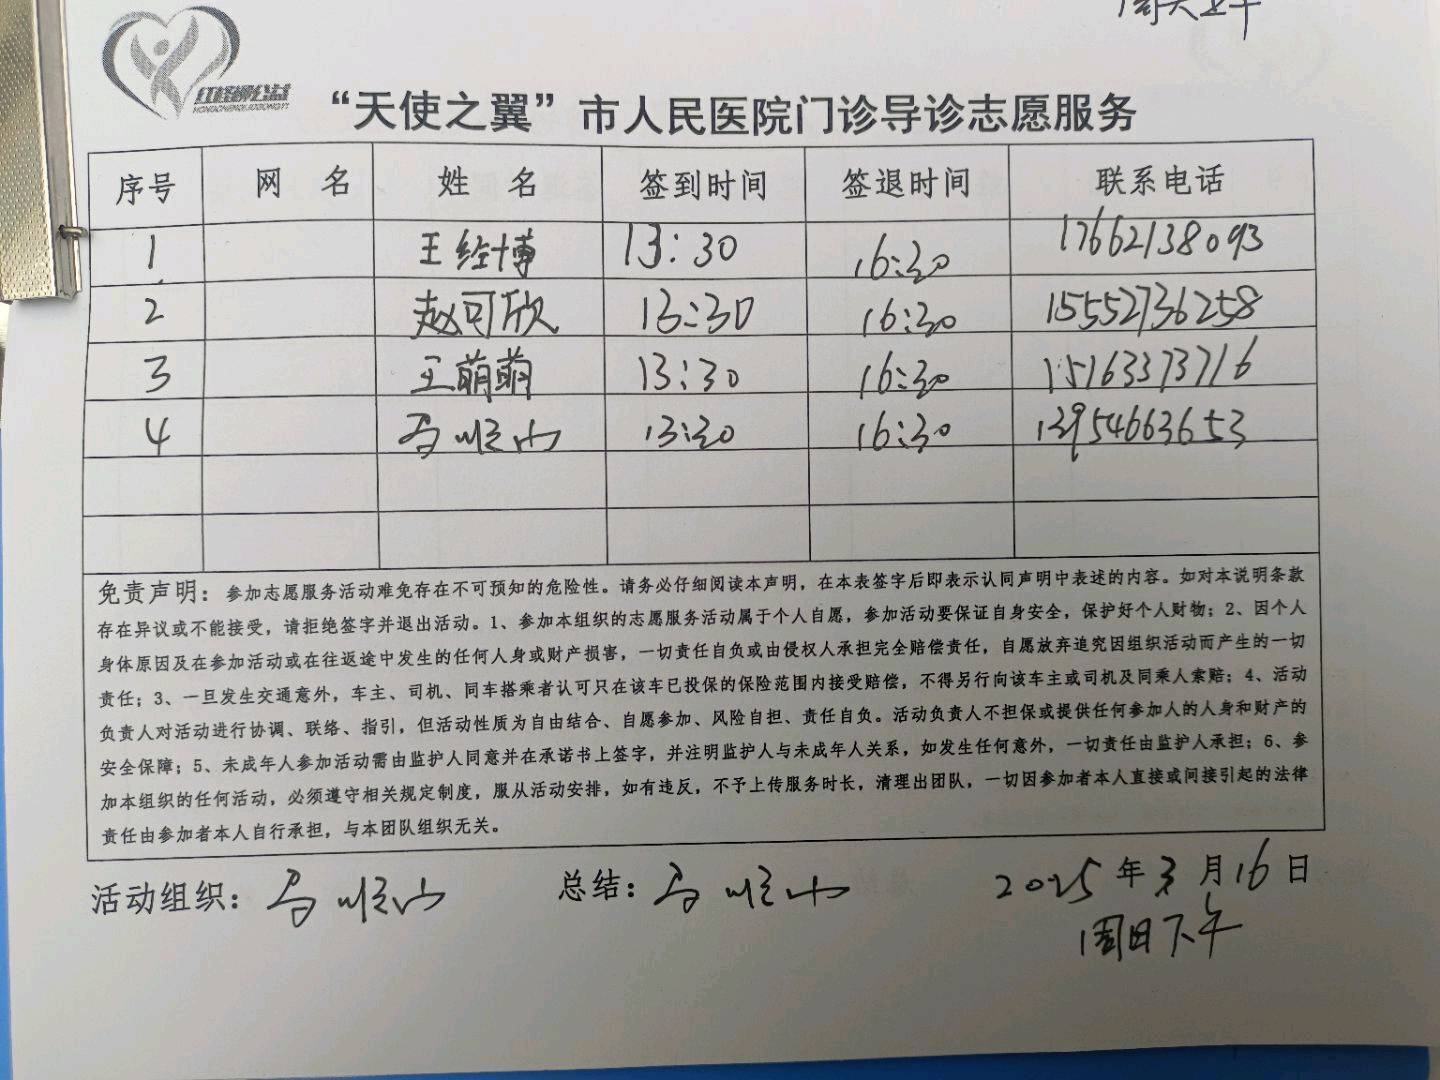 周六上午
红蜂腳公益
“天使之翼”市人民医院门诊导诊志愿服务
序号 网 名 姓 名 签到时间 签退时间 联系电话
1 王经博 13:30 16:30 17662138093
2 赵可欣 13:30 16:30 15552736258
3 王萌萌 13:30 16:30 15163373716
4 马顺山 13:30 16:30 13954663653
免责声明：参加志愿服务活动难免存在不可预知的危险性。请务必仔细阅读本声明，在本表签字后即表示认同声明中表述的内容。如对本说明条款
存在异议或不能接受，请拒绝签字并退出活动。1、参加本组织的志愿服务活动属于个人自愿，参加活动要保证自身安全，保护好个人财物；2、因个人
身体原因及在参加活动或在往返途中发生的任何人身或财产损害，一切责任自负或由侵权人承担完全赔偿责任，自愿放弃追究因组织活动而产生的一切
责任；3、一旦发生交通意外，车主、司机、同车搭乘者认可只在该车已投保的保险范围内接受赔偿，不得另行向该车主或司机及同乘人索赔；4、活动
负责人对活动进行协调、联络、指引，但活动性质为自由结合、自愿参加、风险自担、责任自负。活动负责人不担保或提供任何参加人的人身和财产的
安全保障；5、未成年人参加活动需由监护人同意并在承诺书上签字，并注明监护人与未成年人关系，如发生任何意外，一切责任由监护人承担；6、参
加本组织的任何活动，必须遵守相关规定制度，服从活动安排，如有违反，不予上传服务时长，清理出团队，一切因参加者本人直接或间接引起的法律
责任由参加者本人自行承担，与本团队组织无关。
活动组织：马顺山 总结：马顺山 2025年3月16日
周日下午